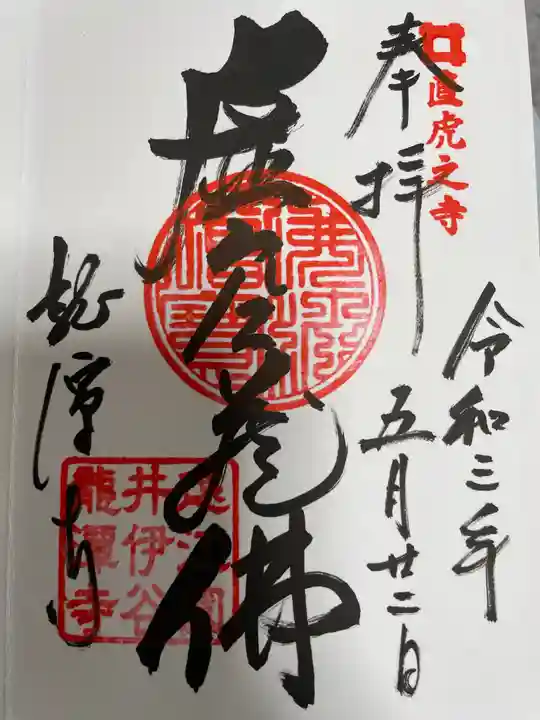 直虎之寺
奉拝
令和三年
五月廿二日
虚空蔵佛
龍潭寺
遠江國
井伊谷
龍潭寺